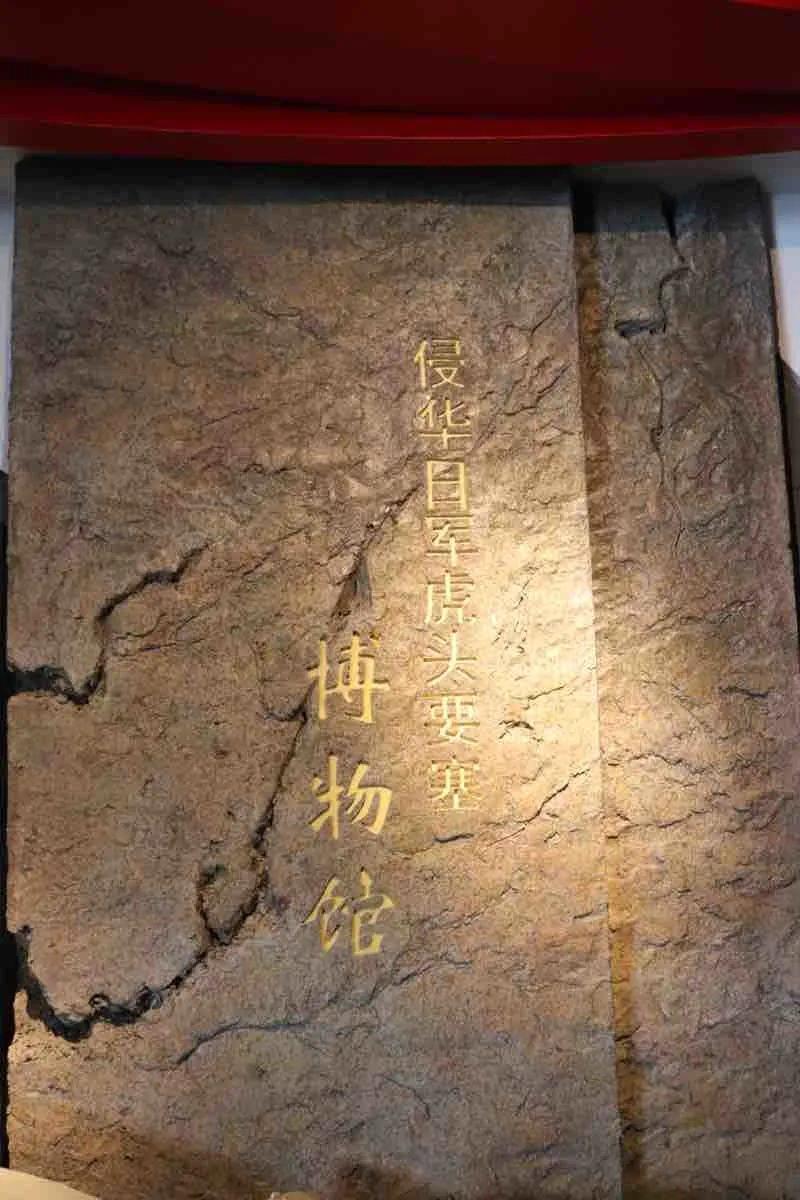 侵华日军虎头要塞
博物馆